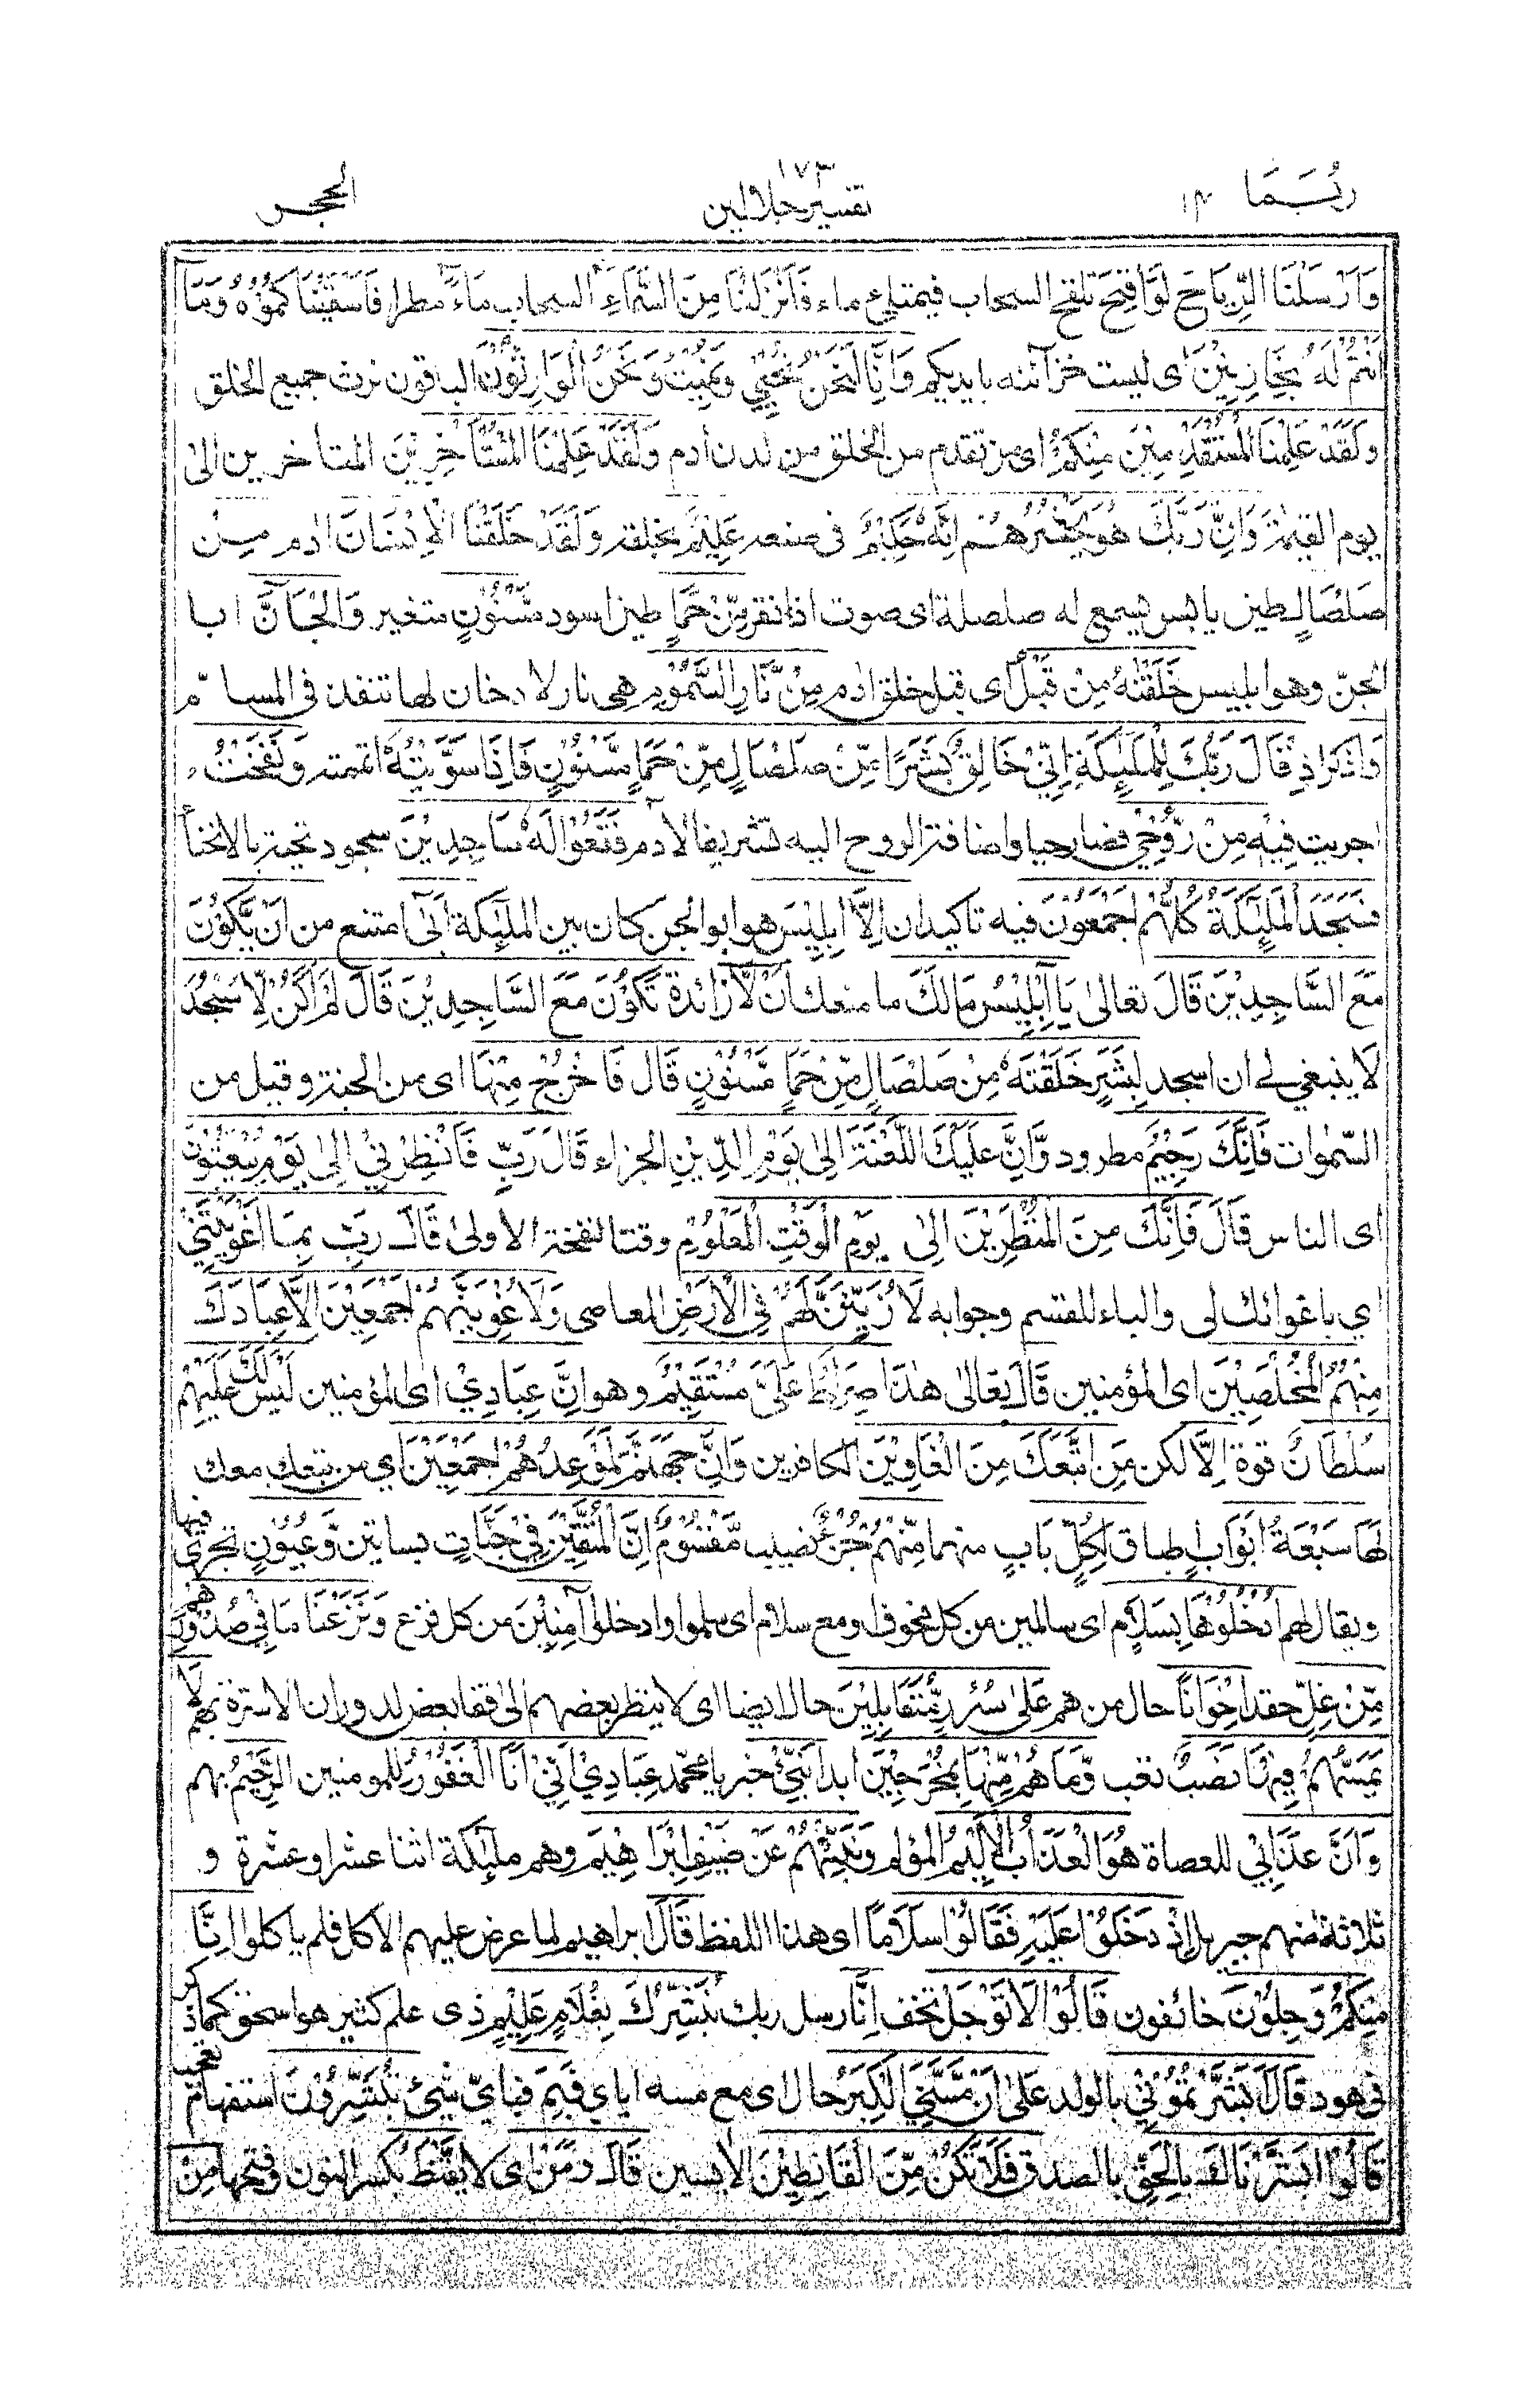 ربما ١٤
١٧٣
تفسير جلالين
الحجر
وَاَرْسَلْنَا الرِّيَاحَ لَوَاقِحَ تلقح السحاب فيمتلئ ماء فَاَنْزَلْنَا مِنَ السَّمَاءِ السحاب مَاءً مطرا فَاَسْقَيْنَاكُمُوْهُ وَمَا
اَنْتُمْ لَهٗ بِخَازِنِيْنَ اى ليست خزآئنه بايديكم وَاِنَّا لَنَحْنُ نُحْيِيْ وَنُمِيْتُ وَنَحْنُ الْوَارِثُوْنَ الباقون نرث جميع الخلق
وَلَقَدْ عَلِمْنَا الْمُسْتَقْدِمِيْنَ مِنْكُمْ اى من تقدم من الخلق من لدن ادم وَلَقَدْ عَلِمْنَا الْمُسْتَاْخِرِيْنَ المتأخرين الى
يوم القيمة وَاِنَّ رَبَّكَ هُوَ يَحْشُرُهُمْ اِنَّهٗ حَكِيْمٌ فى صنعه عَلِيْمٌ بخلقه وَلَقَدْ خَلَقْنَا الْاِنْسَانَ ادم مِنْ
صَلْصَالٍ طين يابس يسمع له صلصلة اى صوت اذا نقر مِّنْ حَمَاٍ طين اسود مَّسْنُوْنٍ متغير وَالْجَآنَّ ابا
الجنّ وهو ابليس خَلَقْنٰهُ مِنْ قَبْلُ اى قبل خلق ادم مِنْ نَّارِ السَّمُوْمِ هى نار لا دخان لها تنفذ فى المسامّ
وَاذكر اِذْ قَالَ رَبُّكَ لِلْمَلٰٓئِكَةِ اِنِّيْ خَالِقٌ بَشَرًا مِّنْ صَلْصَالٍ مِّنْ حَمَاٍ مَّسْنُوْنٍ فَاِذَا سَوَّيْتُهٗ اتممته وَنَفَخْتُ
اجريت فِيْهِ مِنْ رُّوْحِيْ فصار حيا واضافة الروح اليه تشريف لآدم فَقَعُوْا لَهٗ سَاجِدِيْنَ سجود تحية بالانحناء
فَسَجَدَ الْمَلٰٓئِكَةُ كُلُّهُمْ اَجْمَعُوْنَ فيه تاكيدان اِلَّا اِبْلِيْسَ هو ابو الجن كان بين الملٰئكة اَبٰٓى امتنع من اَنْ يَّكُوْنَ
مَعَ السَّاجِدِيْنَ قَالَ تعالى يَا اِبْلِيْسُ مَالَكَ ما منعك اَنْ لَّا زائدة تَكُوْنَ مَعَ السَّاجِدِيْنَ قَالَ لَمْ اَكُنْ لِّاَسْجُدَ
لا ينبغي لي ان اسجد لِبَشَرٍ خَلَقْتَهٗ مِنْ صَلْصَالٍ مِّنْ حَمَاٍ مَّسْنُوْنٍ قَالَ فَاخْرُجْ مِنْهَا اى من الجنة وقيل من
السّمٰوات فَاِنَّكَ رَجِيْمٌ مطرود وَّاِنَّ عَلَيْكَ اللَّعْنَةَ اِلٰى يَوْمِ الدِّيْنِ الجزاء قَالَ رَبِّ فَاَنْظِرْنِيْ اِلٰى يَوْمِ يُبْعَثُوْنَ
اى الناس قَالَ فَاِنَّكَ مِنَ الْمُنْظَرِيْنَ اِلٰى يَوْمِ الْوَقْتِ الْمَعْلُوْمِ وقت النفخة الاولىٰ قَالَ رَبِّ بِمَا اَغْوَيْتَنِيْ
اي باغوائك لى والباء للقسم وجوابه لَاُزَيِّنَنَّ لَهُمْ فِي الْاَرْضِ المعاصى وَلَاُغْوِيَنَّهُمْ اَجْمَعِيْنَ اِلَّا عِبَادَكَ
مِنْهُمُ الْمُخْلَصِيْنَ اى المؤمنين قَالَ تعالىٰ هٰذَا صِرَاطٌ عَلَيَّ مُسْتَقِيْمٌ وهو اِنَّ عِبَادِيْ اى المؤمنين لَيْسَ لَكَ عَلَيْهِمْ
سُلْطَانٌ قوة اِلَّا لكن مَنِ اتَّبَعَكَ مِنَ الْغَاوِيْنَ الكافرين وَاِنَّ جَهَنَّمَ لَمَوْعِدُهُمْ اَجْمَعِيْنَ اي من تبعك معك
لَهَا سَبْعَةُ اَبْوَابٍ اطباق لِكُلِّ بَابٍ منها مِّنْهُمْ جُزْءٌ نصيب مَّقْسُوْمٌ اِنَّ الْمُتَّقِيْنَ فِيْ جَنَّاتٍ بساتين وَّعُيُوْنٍ تجرى فيها
ويقال لهم اُدْخُلُوْهَا بِسَلَامٍ اى سالمين من كل مخوف او مع سلام اى سلموا وادخلوا آمِنِيْنَ من كل فزع وَنَزَعْنَا مَا فِيْ صُدُوْرِهِمْ
مِّنْ غِلٍّ حقد اِخْوَانًا حال من هم عَلٰى سُرُرٍ مُّتَقَابِلِيْنَ حال ايضا اى لا ينظر بعضهم الى قفا بعض لدوران الاسرة بهم لَا
يَمَسُّهُمْ فِيْهَا نَصَبٌ تعب وَّمَا هُمْ مِّنْهَا بِمُخْرَجِيْنَ ابدا نَبِّئْ خبر يا محمّد عِبَادِيْ اَنِّيْ اَنَا الْغَفُوْرُ للمومنين الرَّحِيْمُ بهم
وَاَنَّ عَذَابِيْ للعصاة هُوَ الْعَذَابُ الْاَلِيْمُ المؤلم وَنَبِّئْهُمْ عَنْ ضَيْفِ اِبْرَاهِيْمَ وهم ملٰئكة اثنا عشر او عشرة و
ثلاثة منهم جبريل اِذْ دَخَلُوْا عَلَيْهِ فَقَالُوْا سَلَامًا اى هذا اللفظ قَالَ ابراهيم لما عرض عليهم الاكل فلم ياكلوا اِنَّا
مِنْكُمْ وَجِلُوْنَ خائفون قَالُوْا لَا تَوْجَلْ تخف اِنَّا رسل ربك نُبَشِّرُكَ بِغُلَامٍ عَلِيْمٍ ذى علم كثير هو اسحق كما ذكر
فى هود قَالَ اَبَشَّرْتُمُوْنِيْ بالولد عَلٰى اَنْ مَّسَّنِيَ الْكِبَرُ حال اى مع مسه اياي فَبِمَ فباىّ شئ تُبَشِّرُوْنَ استفهام تعجب
قَالُوْا بَشَّرْنَاكَ بِالْحَقِّ بالصدق فَلَا تَكُنْ مِّنَ الْقَانِطِيْنَ الآيسين قَالَ وَمَنْ اى لا يَّقْنَطُ بكسر النون وفتحها مِنْ